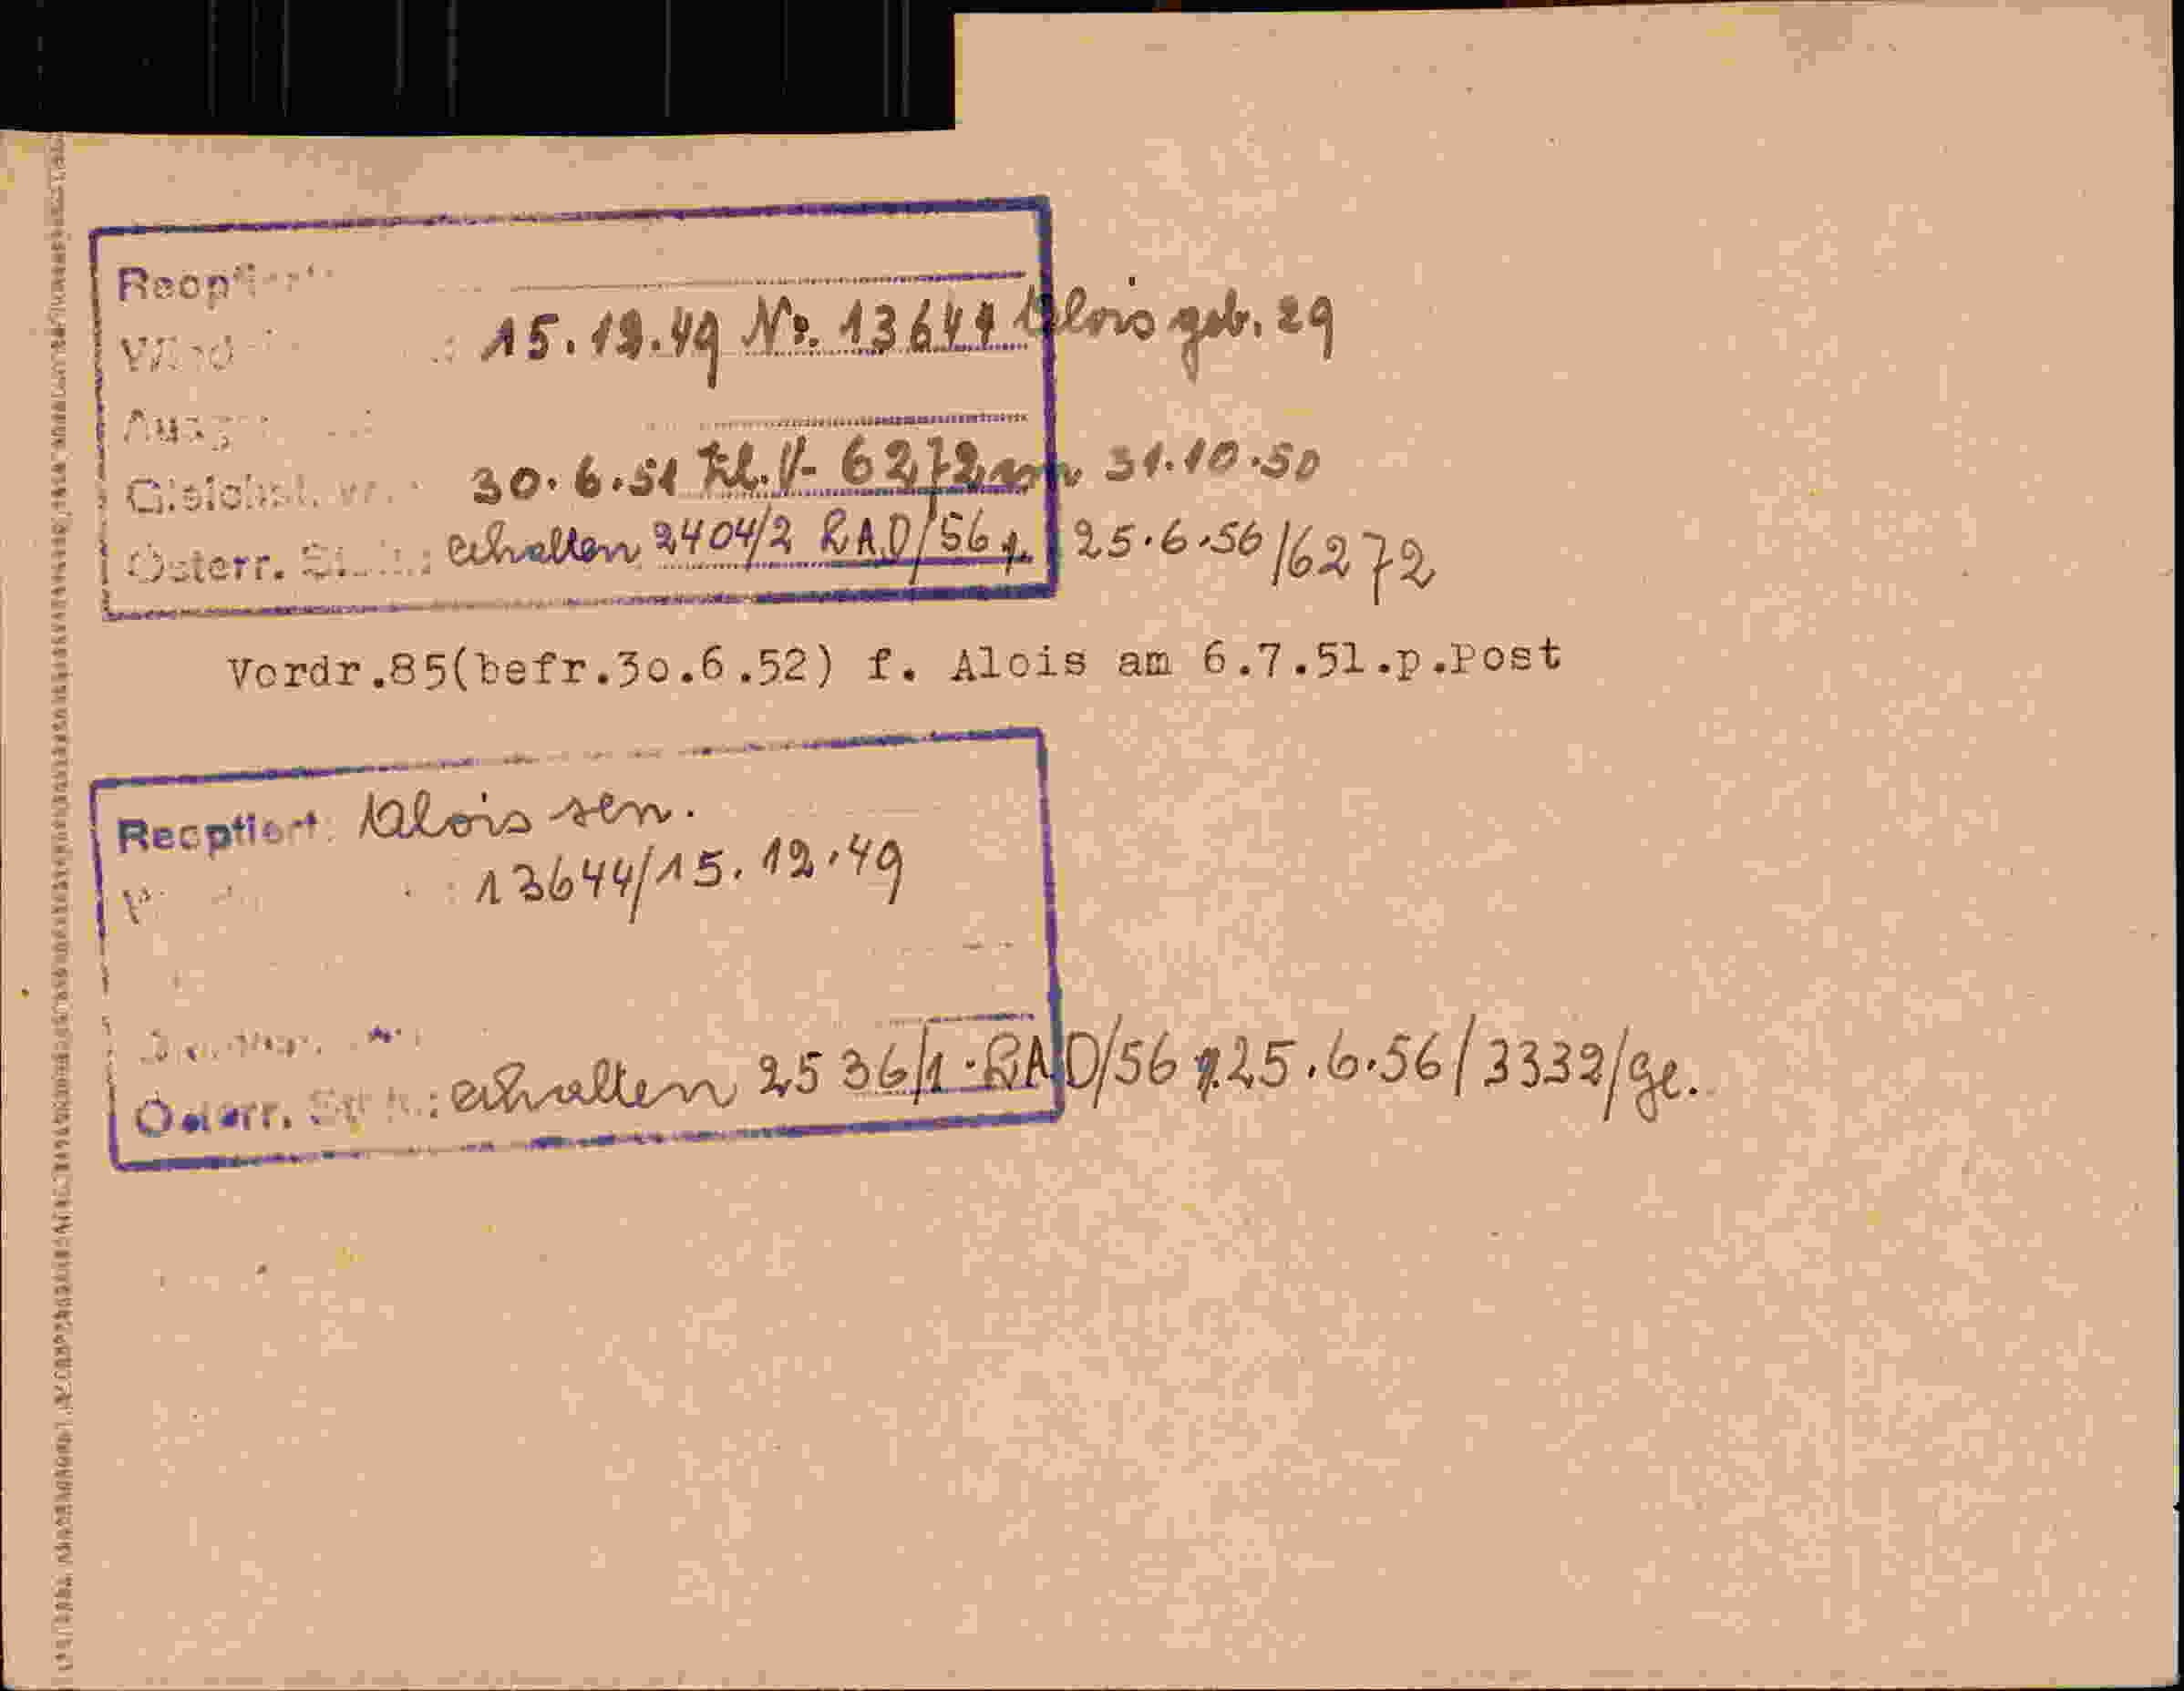 Reoptiert
15.12.49 No. 13644 Alois geb. 29
Gleichst. 30.6.51 Zl. V- 6272 vom 31.10.50
Österr. erhalten 2404/2 LAD/56 v. 25.6.56/6272
Vordr.85(befr.30.6.52) f. Alois am 6.7.51.p.Post
Reoptiert: Alois sen.
: 13644/15.12.49
Österr. : erhalten 2536/1.LAD/56 v. 25.6.56/3332/ge.